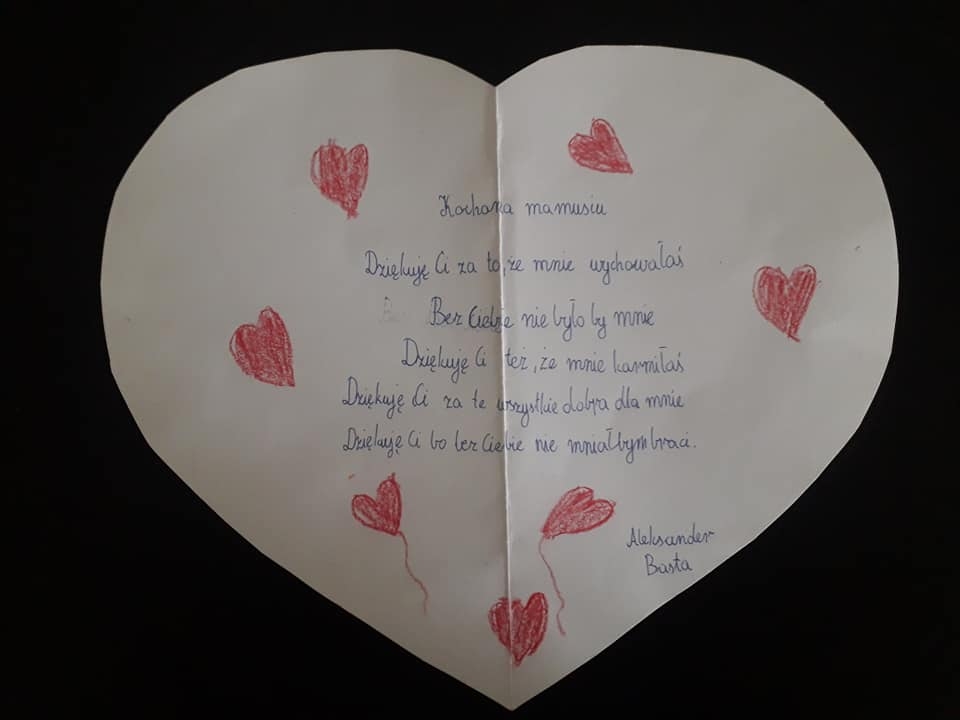 Kochana mamusiu
Dziękuję Ci za to, że mnie wychowałaś
Bez Ciebie nie było by mnie
Dziękuję Ci też, że mnie karmiłaś
Dziękuję Ci za te wszystkie dobra dla mnie
Dziękuję Ci bo bez Ciebie nie mniałbym braci.
Aleksander
Basta